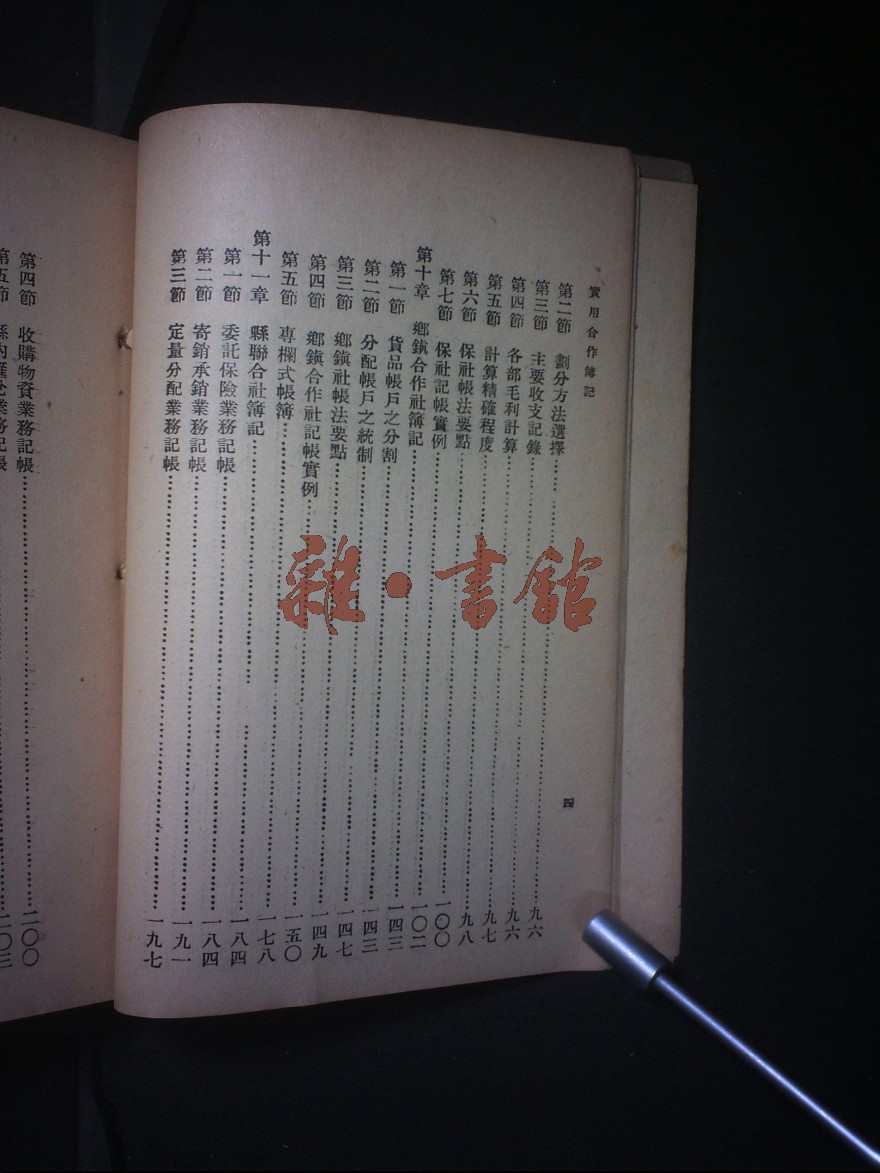 實用合作簿記
四
第二節 劃分方法選擇……九六
第三節 主要收支記錄……九六
第四節 各部毛利計算……九七
第五節 計算精確程度……九八
第六節 保社帳法要點……一〇〇
第七節 保社記帳實例……一〇二
第十章 鄉鎮合作社簿記……一四三
第一節 貨品帳戶之分割……一四三
第二節 分配帳戶之統制……一四七
第三節 鄉鎮社帳法要點……一四九
第四節 鄉鎮合作社記帳實例……一五〇
第五節 專欄式帳簿……一七八
第十一章 縣聯合社簿記……一八四
第一節 委託保險業務記帳……一八四
第二節 寄銷承銷業務記帳……一九一
第三節 定量分配業務記帳……一九七
第四節 收購物資業務記帳……二〇〇
第五節 縣內匯兌業務記帳……二〇三
雜·書館